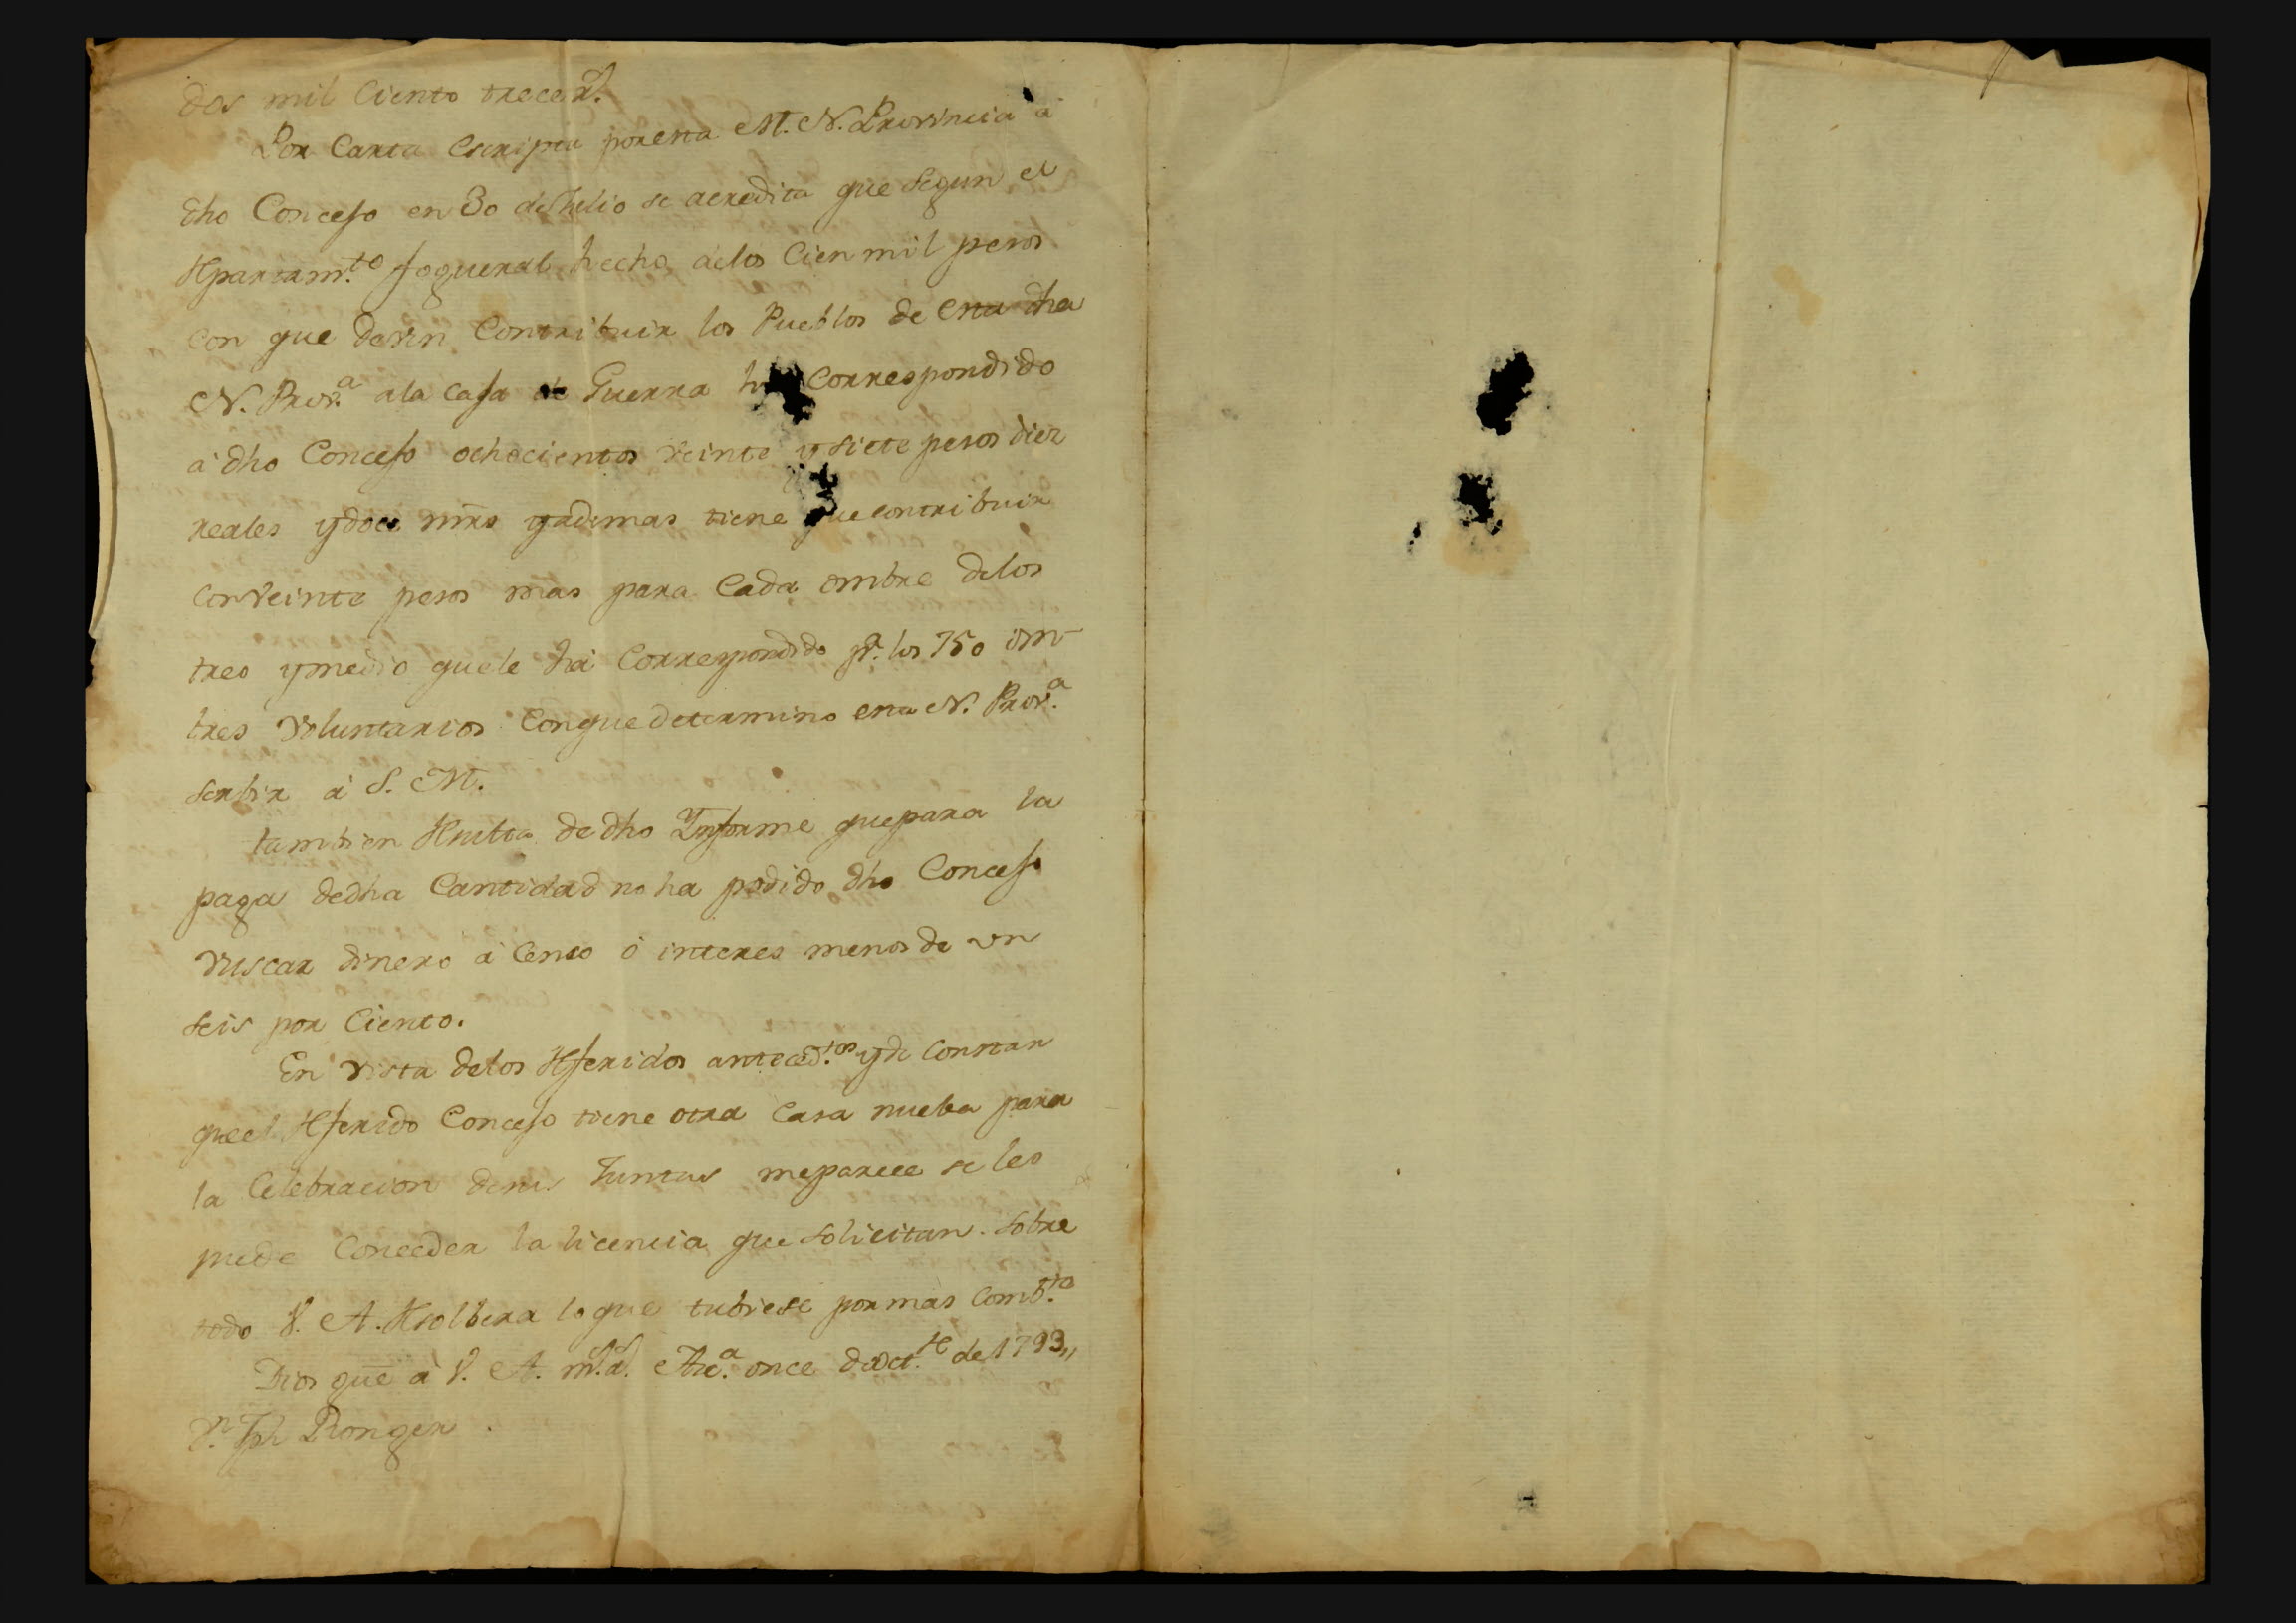 dos mil Ciento trece rs.
Por Carta escripta por esta M. N. Provincia à
dho Concejo en 30 de Julio se acredita que segun el
Repartam.to fogueral hecho de los Cien mil pesos
con que deven Contribuir los Pueblos de esta dha
N. Prov.a a la Casa de Guerra ha Correspondido
à dho Concejo ochocientos veinte y siete pesos diez
reales y doce mrs y ademas tiene que contribuir
con veinte pesos mas para Cada ombre de los
tres y medio que le hà Correspondido p.a los 750 om-
bres Voluntarios Con que determino esta N. Prov.a
serbir à S. M.
tambien Resulta de dho Ynforme que para la
paga de dha Cantidad no ha podido dho Concejo
vuscar dinero à Censo ò interes menos de un
seis por Ciento.
En vista de los Referidos anteced.tos y de Constar
que el Referido Concejo tiene otra Casa nueba para
la Celebracion de sus Juntas me parece se les
puede Conceder la licencia que solicitan. sobre
todo V. A. Resolbera lo que tubiese por màs Comb.te
Dios gue à V. A. m.s a.s once de oct.re de 1793,,
Jph